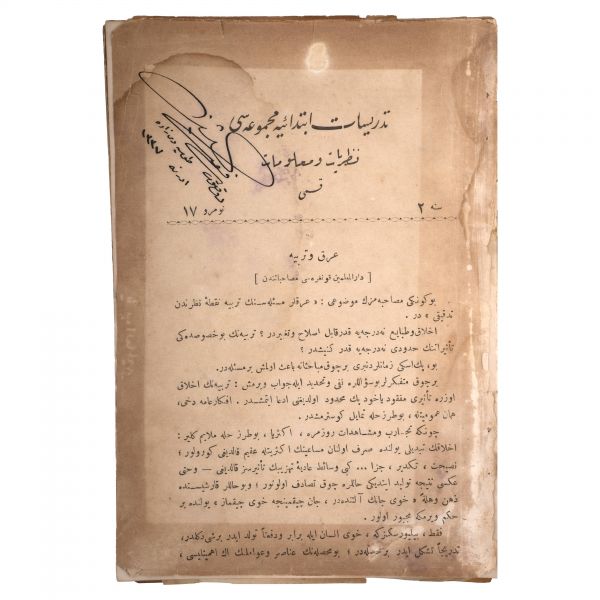 تدریسات ابتدائیه مجموعه‌سی
نظریات و معلومات
قسمی
سنه ٢
نومرو ١٧
عرق و تربیه
[ دارالمعلمین قونفره‌سی مصاحباتندن ]
بوكونكی مصاحبه‌مزك موضوعی : « عرقلر مسئله‌سنك تربیه نقطهٔ نظرندن
تدقیقی » در .
اخلاق و طبایع نه‌درجه‌یه قدر قابل اصلاح و تغیردر ؟ تربیه‌نك بوخصوصده‌كی
تأثیراتنك حدودی نه‌درجه‌یه قدر كنیشدر ؟
بو ، پك‌اسكی زمانلردنبری برچوق مباحثاته باعث اولمش برمسئله‌در .
برچوق متفكرلر بوسؤاللره نفی و تحدید ایله‌جواب ویرمش : تربیه‌نك اخلاق
اوزره تأثیری مفقود یاخود پك محدود اولدیغنی ادعا ایتمشدر . افكارعامه دخی ،
همان عمومیتله ، بوطرز حله تمایل كوسترمشدر .
چونكه تجارب و مشاهدات روزمره ، اكثریا ، بوطرز حله ملایم كلیر :
اخلاقك تبدیلی یولنده صرف اولنان مساعینك اكثریتله عقیم قالدیغی كورولور ؛
نصیحت ، تكدیر ، جزا ... كی وسائط عادیهٔ تهذیبك تأثیرسز قالدیغی — وحتی
عكسی نتیجه تولید ایتدیكی حاللره چوق تصادف اولونور ؛ وبوحاللر قارشیسنده
ذهن وهلةً « خوی جانك آلتنده‌در ، جان چیقمینجه خوی چیقماز » یولنده بر
حكم ویرمكه مجبور اولور .
فقط ، بیلیورسكزكه ، خوی انسان ایله برابر ودفعةً تولد ایدر برشی دكلدر ،
تدریجاً تشكل ایدر برمحصله‌در ؛ بومحصله‌نك عناصر وعواملنك اك اهمیتلیسی ،